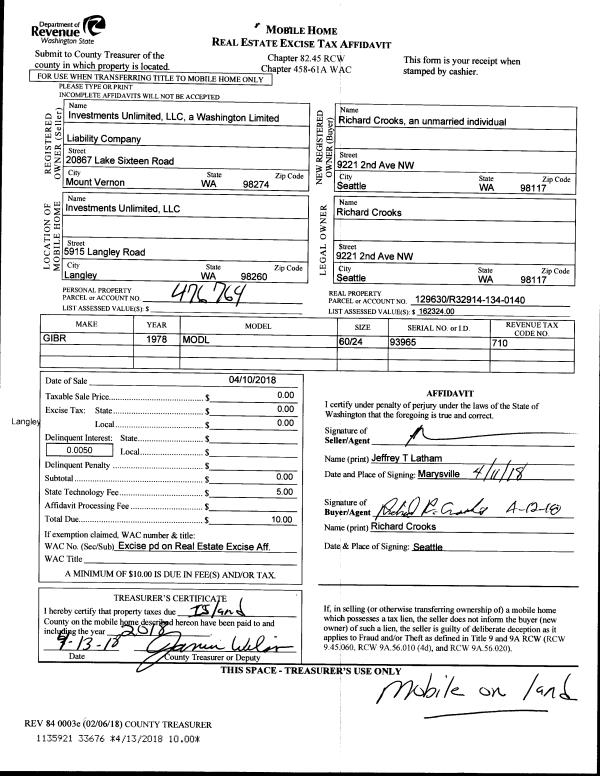 Department of
Revenue
Washington State
MOBILE HOME
REAL ESTATE EXCISE TAX AFFIDAVIT
Submit to County Treasurer of the
county in which property is located.
Chapter 82.45 RCW
Chapter 458-61A WAC
This form is your receipt when
stamped by cashier.
FOR USE WHEN TRANSFERRING TITLE TO MOBILE HOME ONLY
PLEASE TYPE OR PRINT
INCOMPLETE AFFIDAVITS WILL NOT BE ACCEPTED
REGISTERED OWNER (Seller)
Name
Investments Unlimited, LLC, a Washington Limited
Liability Company
Street
20867 Lake Sixteen Road
City State Zip Code
Mount Vernon WA 98274
NEW REGISTERED OWNER (Buyer)
Name
Richard Crooks, an unmarried individual
Street
9221 2nd Ave NW
City State Zip Code
Seattle WA 98117
LOCATION OF MOBILE HOME
Name
Investments Unlimited, LLC
Street
5915 Langley Road
City State Zip Code
Langley WA 98260
LEGAL OWNER
Name
Richard Crooks
Street
9221 2nd Ave NW
City State Zip Code
Seattle WA 98117
PERSONAL PROPERTY
PARCEL or ACCOUNT NO. 476764
LIST ASSESSED VALUE(S): $
REAL PROPERTY
PARCEL or ACCOUNT NO. 129630/R32914-134-0140
LIST ASSESSED VALUE(S): $ 162324.00
MAKE YEAR MODEL SIZE SERIAL NO. or I.D. REVENUE TAX CODE NO.
GIBR 1978 MODL 60/24 93965 710
Date of Sale 04/10/2018
Taxable Sale Price $ 0.00
Excise Tax: State $ 0.00
Langley Local $ 0.00
Delinquent Interest: State $
0.0050 Local $
Delinquent Penalty $
Subtotal $ 0.00
State Technology Fee $ 5.00
Affidavit Processing Fee $
Total Due $ 10.00
If exemption claimed, WAC number & title:
WAC No. (Sec/Sub) Excise pd on Real Estate Excise Aff.
WAC Title
A MINIMUM OF $10.00 IS DUE IN FEE(S) AND/OR TAX.
AFFIDAVIT
I certify under penalty of perjury under the laws of the State of
Washington that the foregoing is true and correct.
Signature of
Seller/Agent
Name (print) Jeffrey T Latham
Date and Place of Signing: Marysville 4/11/18
Signature of
Buyer/Agent Richard R. Crooks 4-12-18
Name (print) Richard Crooks
Date & Place of Signing: Seattle
TREASURER'S CERTIFICATE
I hereby certify that property taxes due Island
County on the mobile home described hereon have been paid to and
including the year 2018
4-13-18
Date County Treasurer or Deputy
If, in selling (or otherwise transferring ownership of) a mobile home
which possesses a tax lien, the seller does not inform the buyer (new
owner) of such a lien, the seller is guilty of deliberate deception as it
applies to Fraud and/or Theft as defined in Title 9 and 9A RCW (RCW
9.45.060, RCW 9A.56.010 (4d), and RCW 9A.56.020).
THIS SPACE - TREASURER'S USE ONLY
Mobile on land
REV 84 0003e (02/06/18) COUNTY TREASURER
1135921 33676 *4/13/2018 10.00*